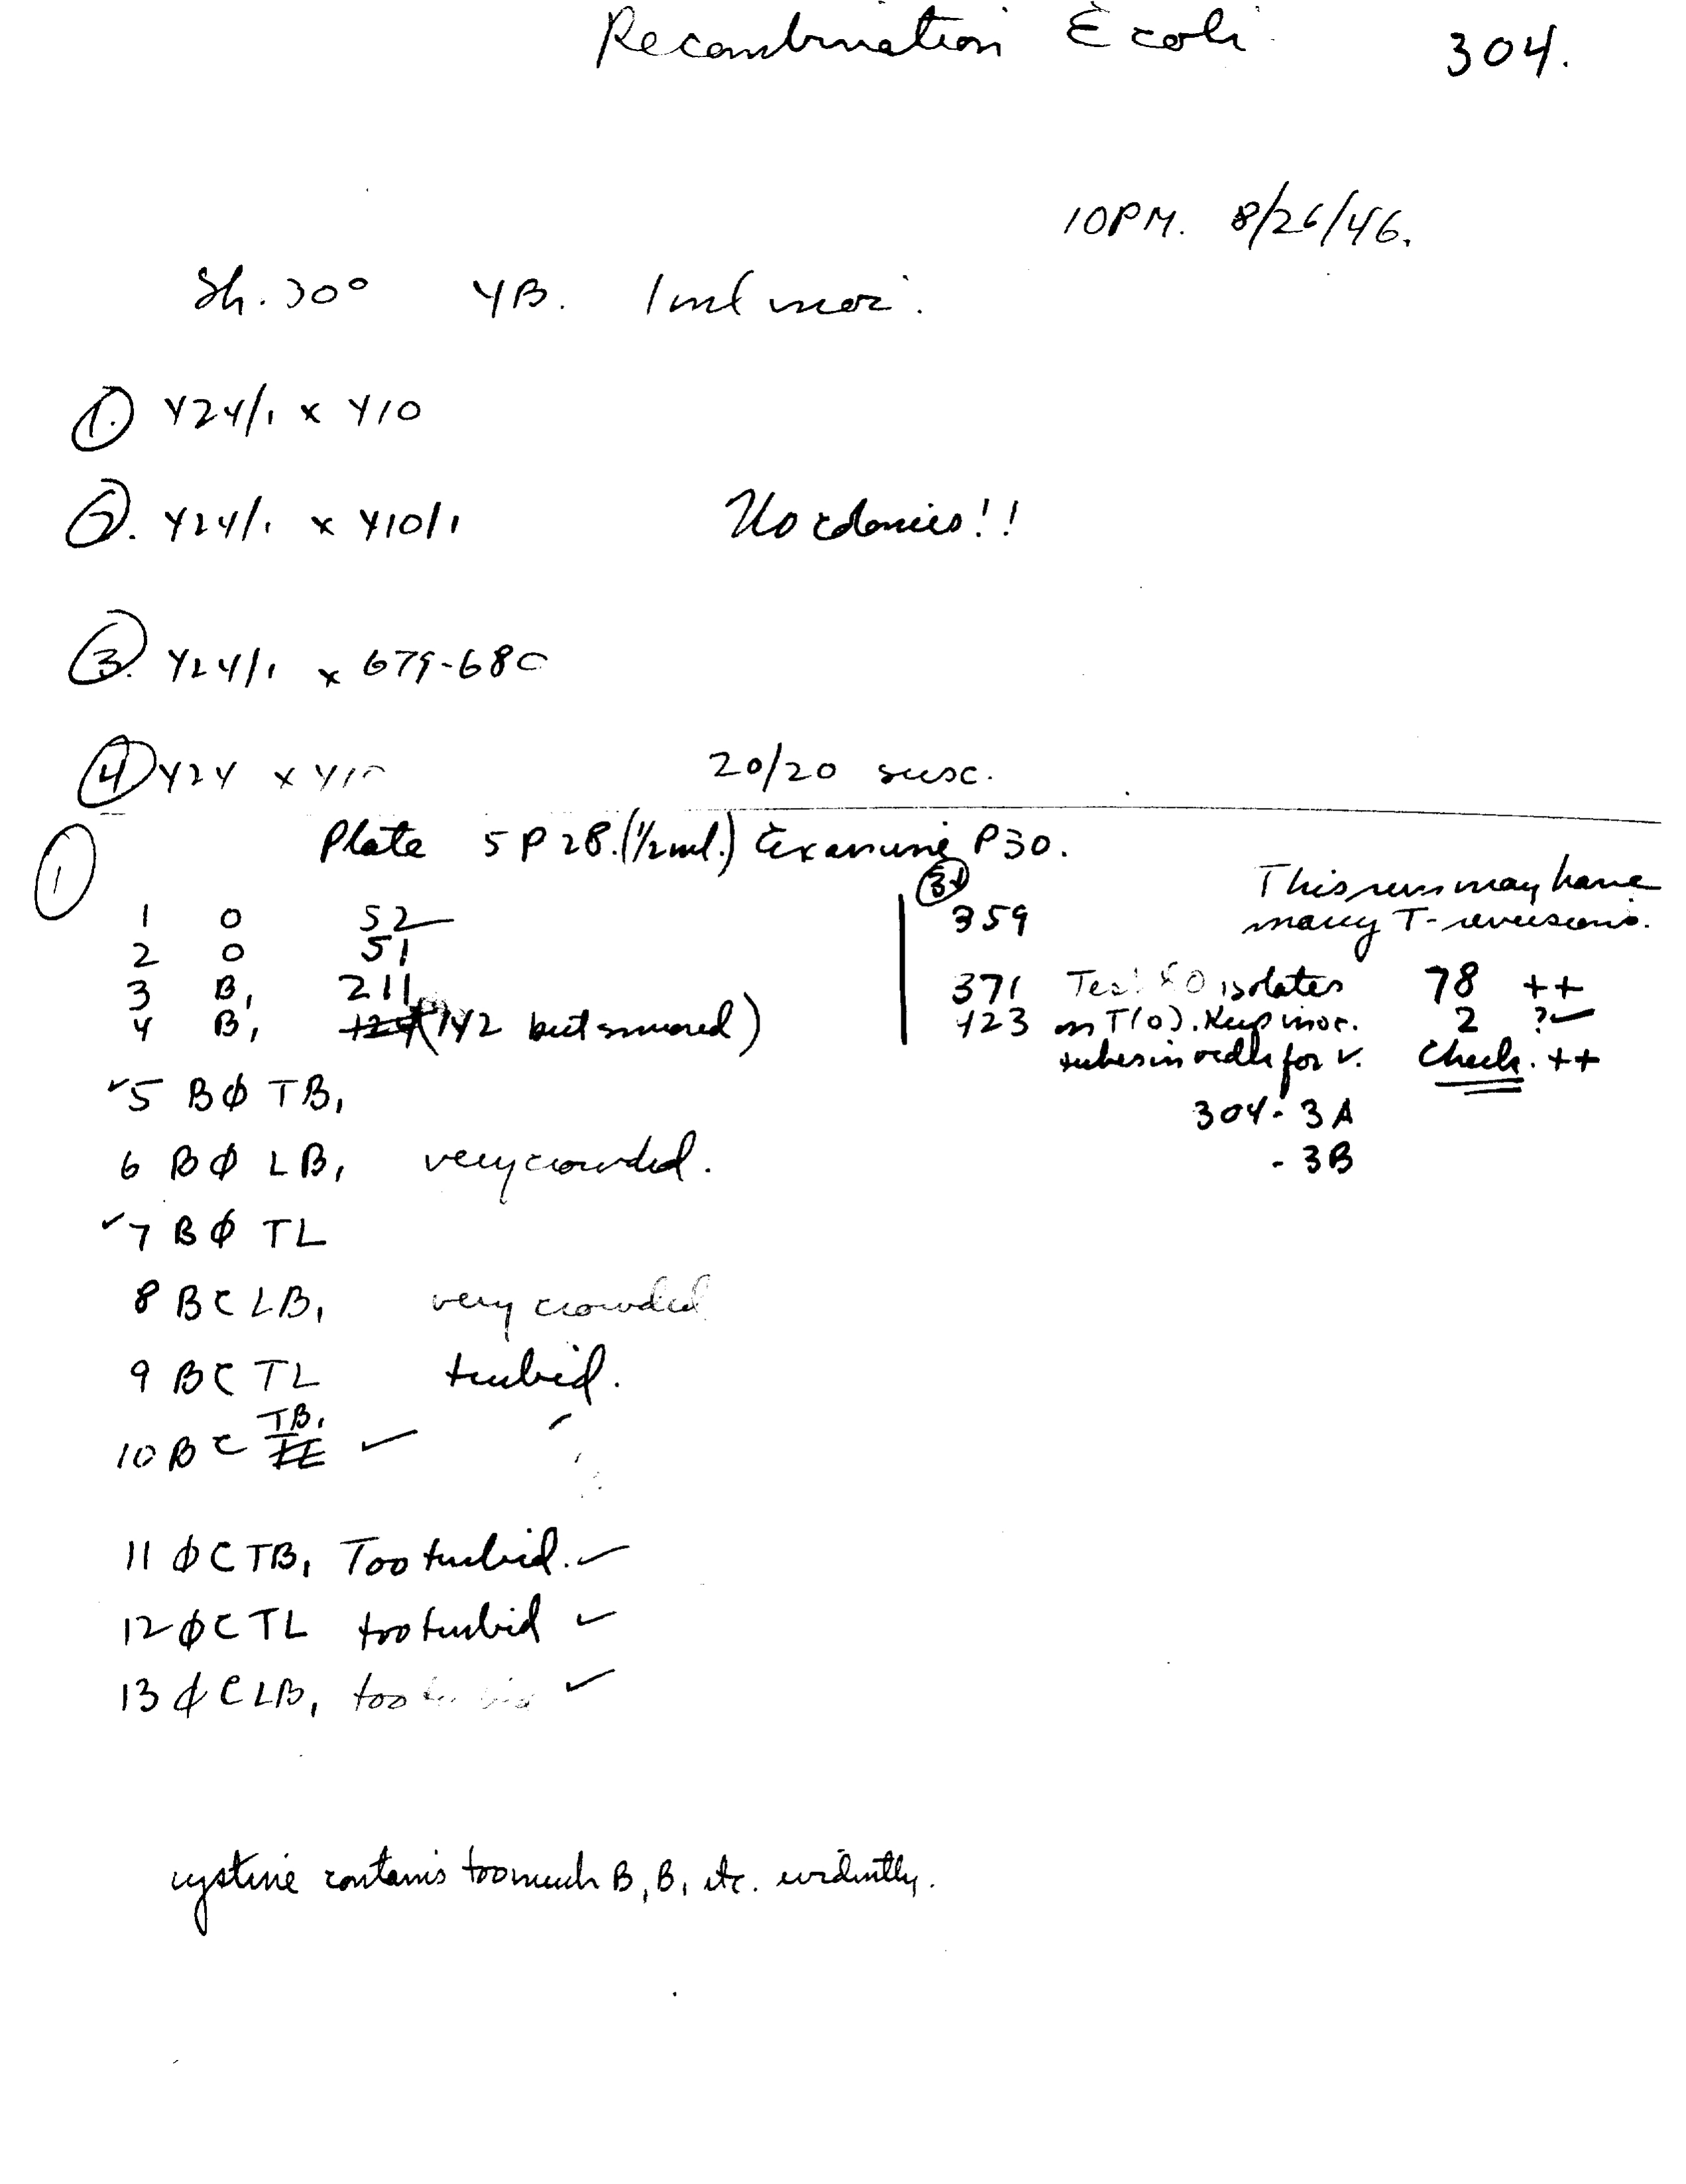 Recombination E coli 304.
10PM. 8/26/46.
Sh. 30° YB. 1ml inoc.
1. Y24/1 x Y10
2. Y24/1 x Y10/1 No colonies!!
3. Y24/1 x 679-680
4 Y24 x Y10 20/20 susc.
Plate 5 P 28. (1/2 ml.) Examine P30.
1
1 0 52
2 0 51
3 B1 211
4 B1 (142 but smeared)
✓5 Bφ TB1
6 Bφ LB1 very crowded.
✓7 Bφ TL
8 BC LB1 very crowded
9 BC TL turbid.
10 BC TB1 ✓
11 φC TB1 Too turbid. ✓
12 φC TL too turbid ✓
13 φC LB1 too turbid ✓
3
This run may have
many T- reversions.
359
371 Test 80 isolates 78 ++
423 on T(0). Keep inoc. 2 ?✓
tubes in order for ✓. Check. ++
304-3A
-3B
cystine contains too much B, B1 etc. evidently.